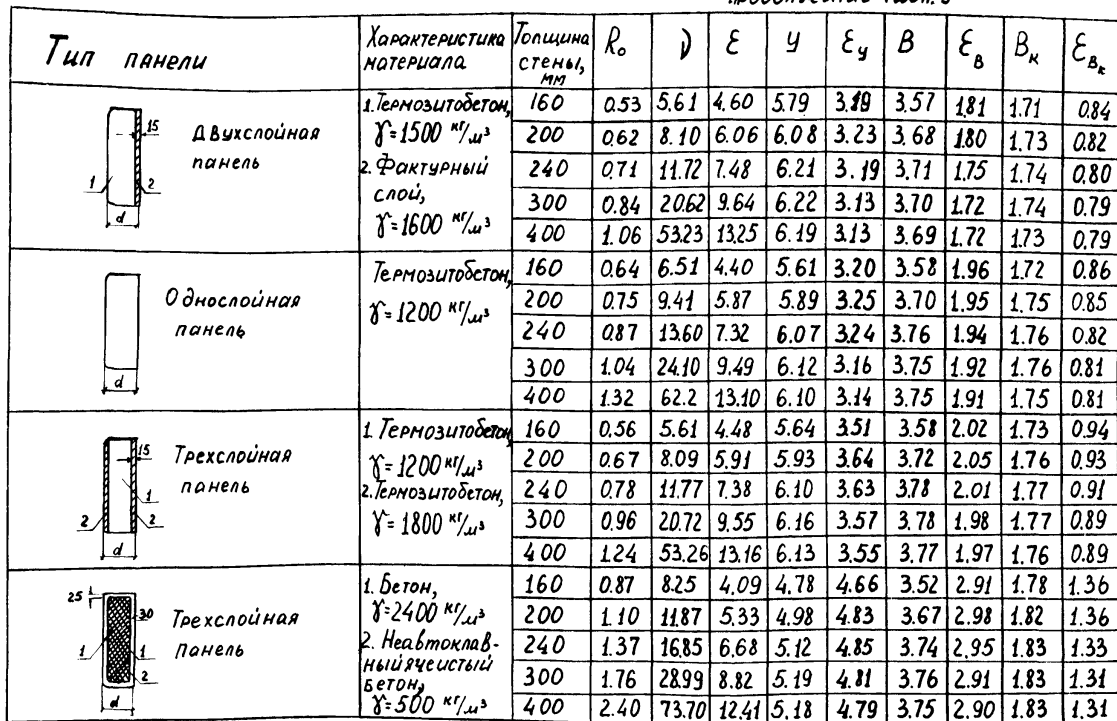 Тип панели | Характеристика материала | Толщина стены, мм | R₀ | ν | ε | У | ε_у | В | ε_В | В_к | ε_В_к
Двухслойная панель 15 1 2 d | 1. Термозитобетон, γ=1500 кг/м³ 2. Фактурный слой, γ=1600 кг/м³ | 160 | 0.53 | 5.61 | 4.60 | 5.79 | 3.19 | 3.57 | 1.81 | 1.71 | 0.84
200 | 0.62 | 8.10 | 6.06 | 6.08 | 3.23 | 3.68 | 1.80 | 1.73 | 0.82
240 | 0.71 | 11.72 | 7.48 | 6.21 | 3.19 | 3.71 | 1.75 | 1.74 | 0.80
300 | 0.84 | 20.62 | 9.64 | 6.22 | 3.13 | 3.70 | 1.72 | 1.74 | 0.79
400 | 1.06 | 53.23 | 13.25 | 6.19 | 3.13 | 3.69 | 1.72 | 1.73 | 0.79
Однослойная панель d | Термозитобетон, γ=1200 кг/м³ | 160 | 0.64 | 6.51 | 4.40 | 5.61 | 3.20 | 3.58 | 1.96 | 1.72 | 0.86
200 | 0.75 | 9.41 | 5.87 | 5.89 | 3.25 | 3.70 | 1.95 | 1.75 | 0.85
240 | 0.87 | 13.60 | 7.32 | 6.07 | 3.24 | 3.76 | 1.94 | 1.76 | 0.82
300 | 1.04 | 24.10 | 9.49 | 6.12 | 3.16 | 3.75 | 1.92 | 1.76 | 0.81
400 | 1.32 | 62.2 | 13.10 | 6.10 | 3.14 | 3.75 | 1.91 | 1.75 | 0.81
Трехслойная панель 15 1 2 2 d | 1. Термозитобетон γ=1200 кг/м³ 2. Термозитобетон, γ=1800 кг/м³ | 160 | 0.56 | 5.61 | 4.48 | 5.64 | 3.51 | 3.58 | 2.02 | 1.73 | 0.94
200 | 0.67 | 8.09 | 5.91 | 5.93 | 3.64 | 3.72 | 2.05 | 1.76 | 0.93
240 | 0.78 | 11.77 | 7.38 | 6.10 | 3.63 | 3.78 | 2.01 | 1.77 | 0.91
300 | 0.96 | 20.72 | 9.55 | 6.16 | 3.57 | 3.78 | 1.98 | 1.77 | 0.89
400 | 1.24 | 53.26 | 13.16 | 6.13 | 3.55 | 3.77 | 1.97 | 1.76 | 0.89
Трехслойная панель 25 30 1 1 2 d | 1. Бетон, γ=2400 кг/м³ 2. Неавтоклавный ячеистый бетон, γ=500 кг/м³ | 160 | 0.87 | 8.25 | 4.09 | 4.78 | 4.66 | 3.52 | 2.91 | 1.78 | 1.36
200 | 1.10 | 11.87 | 5.33 | 4.98 | 4.83 | 3.67 | 2.98 | 1.82 | 1.36
240 | 1.37 | 16.85 | 6.68 | 5.12 | 4.85 | 3.74 | 2.95 | 1.83 | 1.33
300 | 1.76 | 28.99 | 8.82 | 5.19 | 4.81 | 3.76 | 2.91 | 1.83 | 1.31
400 | 2.40 | 73.70 | 12.41 | 5.18 | 4.79 | 3.75 | 2.90 | 1.83 | 1.31